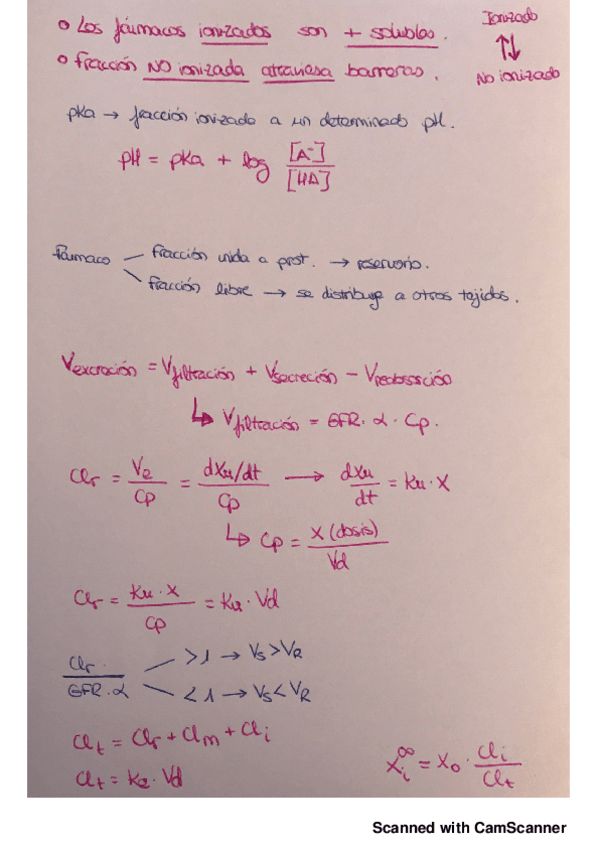 • Los fármacos ionizados son + solubles.
Ionizado
⇅
No ionizado
• Fracción NO ionizada atraviesa barreras.
pKa → fracción ionizada a un determinado pH.
pH = pKa + log [A⁻]/[HA]
Fármaco
Fracción unida a prot. → reservorio.
fracción libre → se distribuye a otros tejidos.
Vexcreción = Vfiltración + Vsecreción - Vreabsorción
↳ Vfiltración = GFR · α · Cp.
Clr = Ve/Cp = dXu/dt/Cp → dXu/dt = Ku · X
↳ Cp = X (dosis)/Vd
Clr = Ku · X/Cp = Ku · Vd
Clr/GFR · α
>1 → Vs > VR
<1 → Vs < VR
Clt = Clr + Clm + Cli
Clt = Ke · Vd
Xi∞ = X0 · Cli/Clt
Scanned with CamScanner